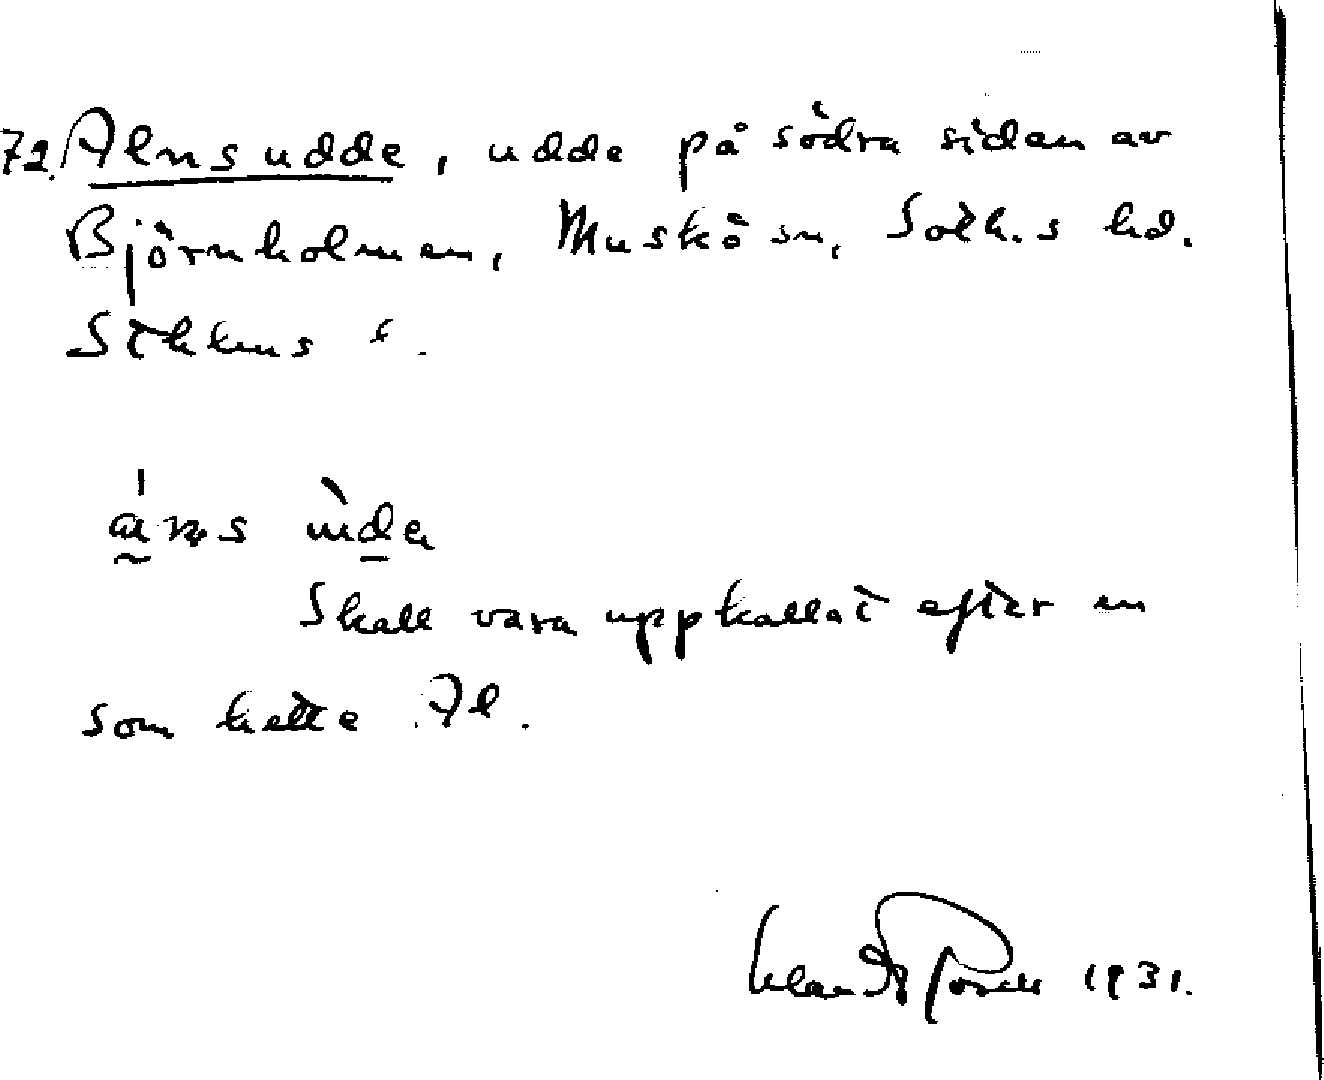 72. Alnsudde, udde på södra sidan av
Björnholmen, Muskö sn, Soth.s hd.
Sthlms l.
Skall vara uppkallat efter en
som hette Al.
1931.